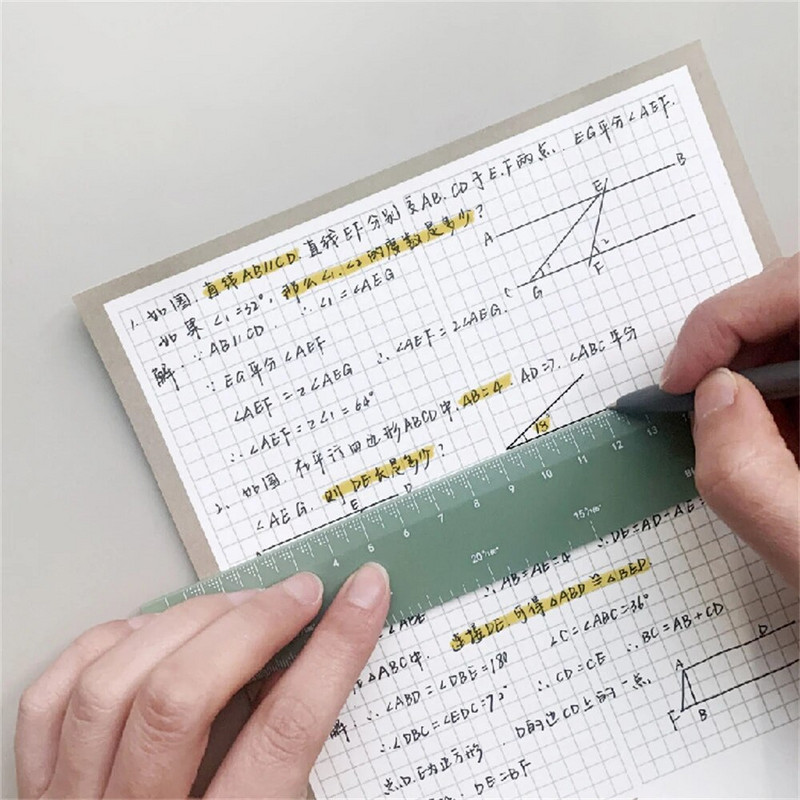 1. 如图, 直线AB∥CD. 直线EF分别交AB. CD于E.F两点. EG平分∠AEF.
如果 ∠1=32°, 那么∠1.∠2的度数是多少?
解: ∵ AB∥CD ∴ ∠1=∠AEG
∵ EG平分∠AEF
∠AEF=2∠AEG ∴ ∠AEF=2∠AEG.
∴ ∠AEF=2∠1=64°
A
B
E
C
G
F
1
2
2、如图. 在平行四边形ABCD中. AB=4. AD=7. ∠ABC平分
∠AEG. 则DE长是多少?
E
D
18°
4 5 6 7 8 9 10 11 12 13
20°
15°
∴ AB=AE=4 ∴ DE=AD-AE=
∠ABE
连接DE. 可得△ABD≌△BED.
在△ABC中. ∠C=∠ABC=36°
解: ∴ ∠ABD=∠DBE=18° ∴ BC=AB+CD
∴ ∠DBC=∠EDC=72° ∴ CD=CE
点D.E为正方形. D的边CD上的一点
DE=BF
A
D
F
B